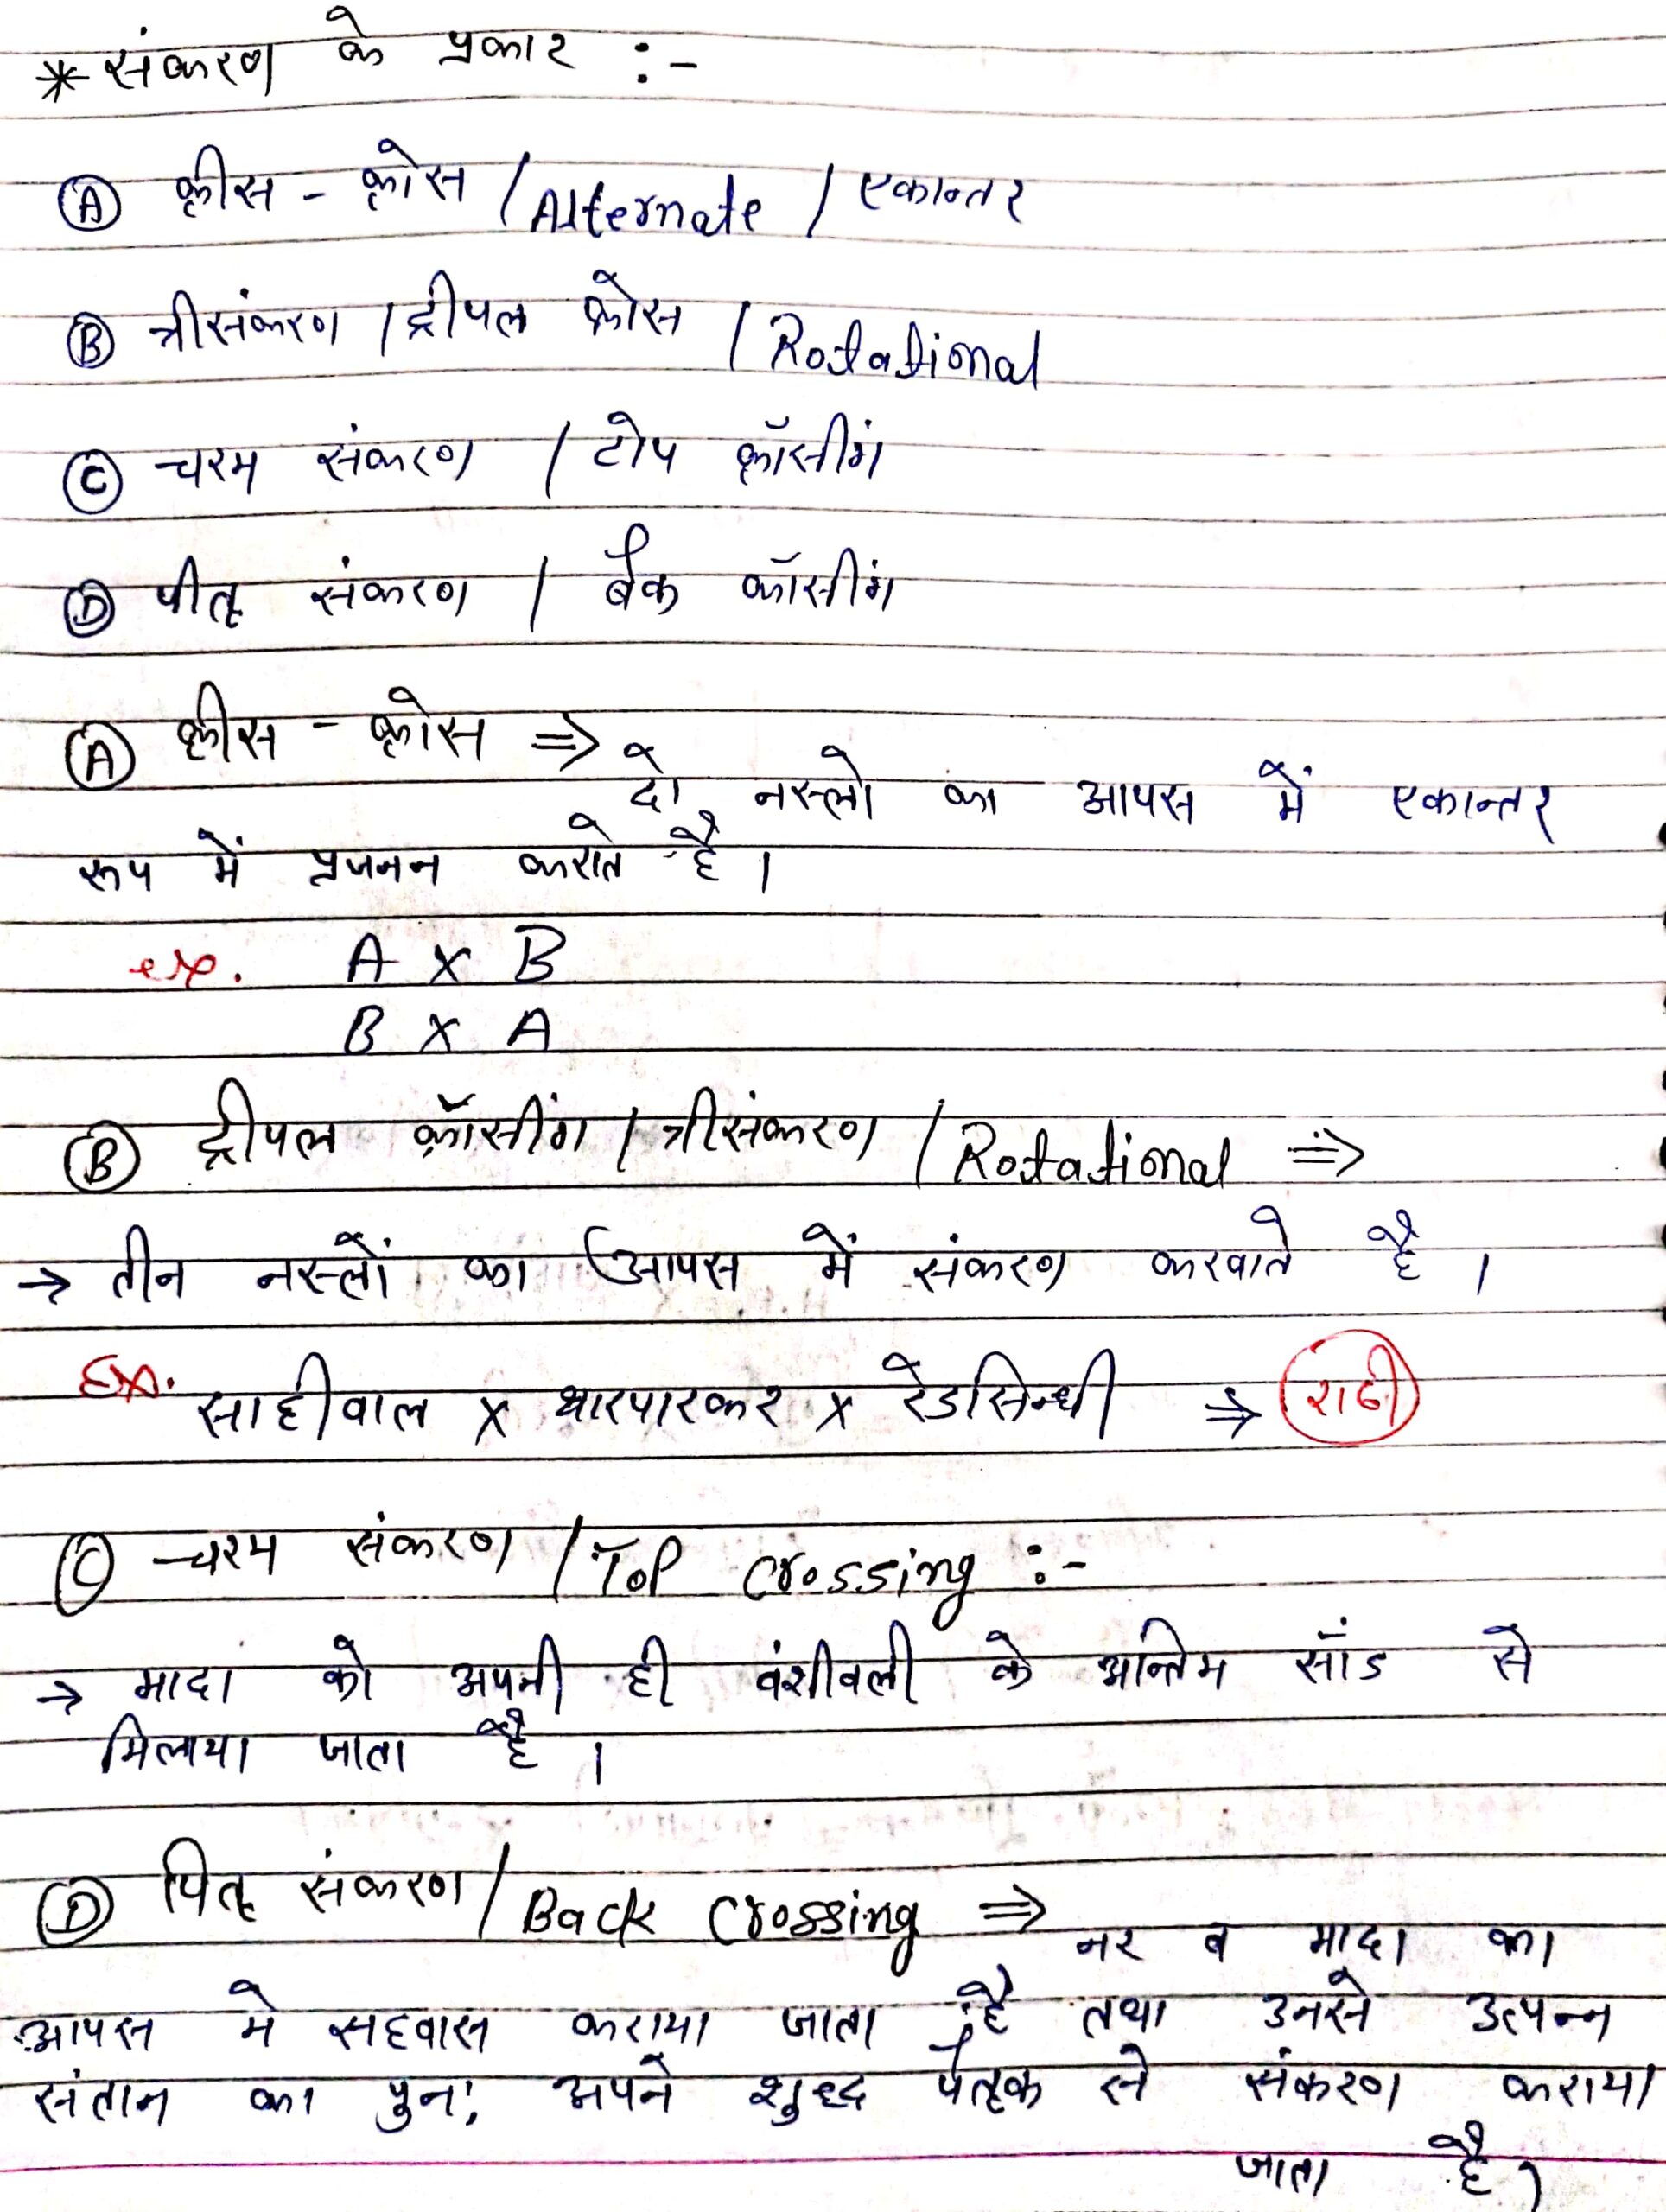 * संकरण के प्रकार :-
Ⓐ क्रीस - क्रोस / Alternate / एकान्तर
Ⓑ त्रीसंकरण / ट्रीपल क्रोस / Rotational
Ⓒ चरम संकरण / टोप क्रॉसींग
Ⓓ पीतृ संकरण / बैक क्रॉसींग
Ⓐ क्रीस - क्रोस ⇒
दो नस्लो का आपस में एकान्तर
रूप में प्रजनन कराते है ।
ex. A x B
B x A
Ⓑ ट्रीपल क्रॉसींग / त्रीसंकरण / Rotational ⇒
→ तीन नस्लों का आपस में संकरण करवाते है ।
Ex. साहीवाल x थारपारकर x रेडसिन्धी ⇒ राठी
Ⓒ चरम संकरण / Top Crossing :-
→ मादा को अपनी ही वंशीवली के अन्तिम सॉड से
मिलाया जाता है ।
Ⓓ पितृ संकरण / Back Crossing ⇒
नर व मादा का
आपस मे सहवास कराया जाता है तथा उनसे उत्पन्न
संतान का पुन: अपने शुध्द पैतृक से संकरण कराया
जाता है ।